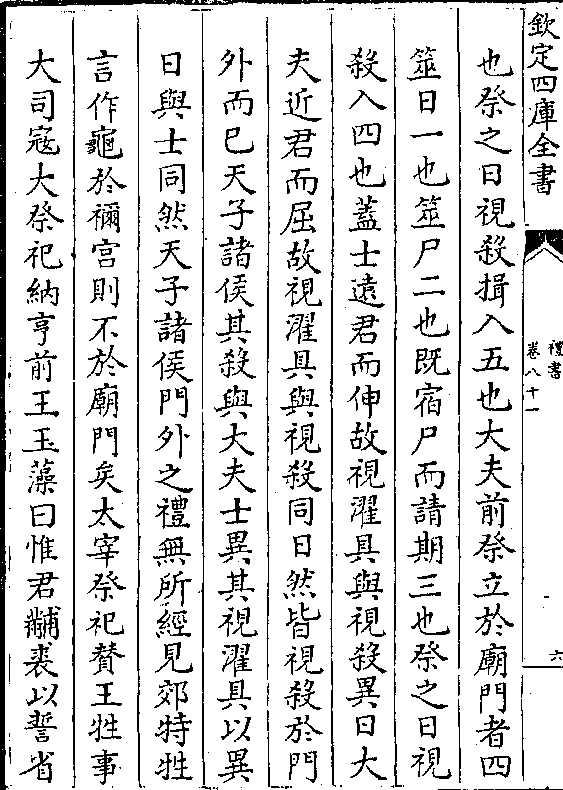 欽定四庫全書
禮書
卷八十一
六
也祭之日視殺揖入五也大夫前祭立於廟門者四
筮日一也筮尸二也既宿尸而請期三也祭之日視
殺入四也蓋士遠君而伸故視濯具與視殺異日大
夫近君而屈故視濯具與視殺同日然皆視殺於門
外而已天子諸侯其殺與大夫士異其視濯具以異
日與士同然天子諸侯門外之禮無所經見郊特牲
言作龜於禰宮則不於廟門矣太宰祭祀贊王牲事
大司寇大祭祀納亨前王玉藻曰惟君黼裘以誓省